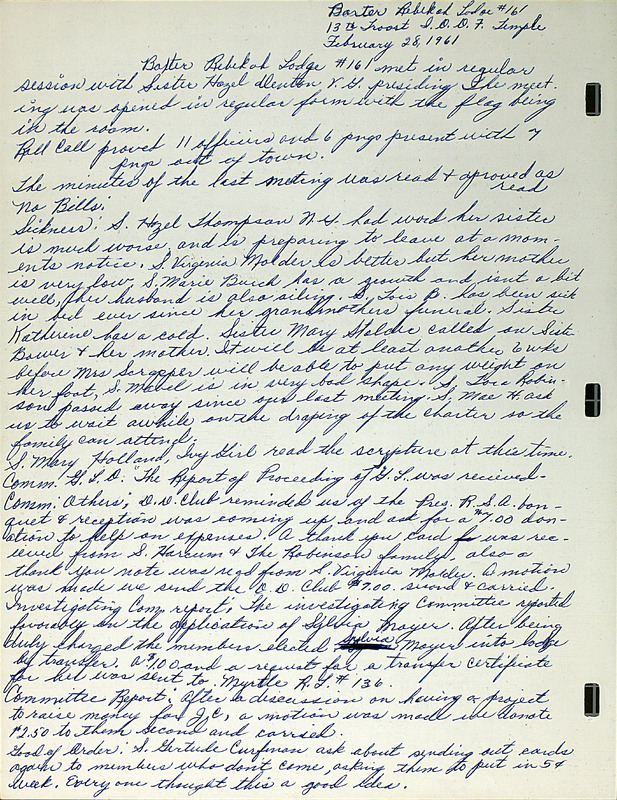 Baxter Rebekah Lodge #161
13th Troost I.O.O.F. Temple
February 28, 1961
Baxter Rebekah Lodge #161 met in regular
session with Sister Hazel Denton V.G. presiding The meet-
ing was opened in regular form with the flag being
in the room.
Roll Call proved 11 officiers and 6 pngs present with 7
pngs out of town.
The minutes of the last meeting was read & aproved as
read
No Bills.
Sickness: S. Hazel Thompson N.G. had word her sister
is much worse, and is preparing to leave at a mom-
ents notice. S. Virginia Molder is better but her mother
is very low. S. Marie Burch has a growth and isnt a bit
well, her husband is also ailing. S. Lois B. has been sick
in bed ever since her grandmothers funeral. Sister
Katherine has a cold. Sister Mary called on Sist.
Bower & her mother. It will be at least another 6 wks
before Mrs Scrapper will be able to put any weight on
her foot, S. Mabel is in very bad shape. S. Robin-
son passed away since our last meeting. S. Mae H. ask
us to wait awhile on the draping of the charter so the
family can attend.
S. Mary Holland, Ivy Girl read the scripture at this time.
Comm. G.L.O. The Report of Proceeding of G.L. was recieved-
Comm. Others; D.D. Club reminded us of the Pres. R.S.A. ban-
quet & reception was coming up and ask for a $7.00 don-
ation to help on expenses. A thank you card was rec-
ieved from S. Harrum & The Robinson family also a
thank you note was read from S. Virginia Molder. A motion
was made we send the D.D. Club $7.00. second & carried.
Investigating Com. report. The investigating Committee reported
favorably on the application of Sylvia Mayer. After being
duly charged the members elected Sylvia Mayer into lodge
by transfer. A $1.00 and a request for a transfer certificate
for her was sent to Myrtle R.L. #136.
Committee Report: After a discussion on having a project
to raise money for J.C, a motion was made we donate
$2.50 to them second and carried.
Good of Order: S. Gertude Curfman ask about sending out cards
again to members who don't come, asking them to put in 5¢
week. Every one thought this a good idea.